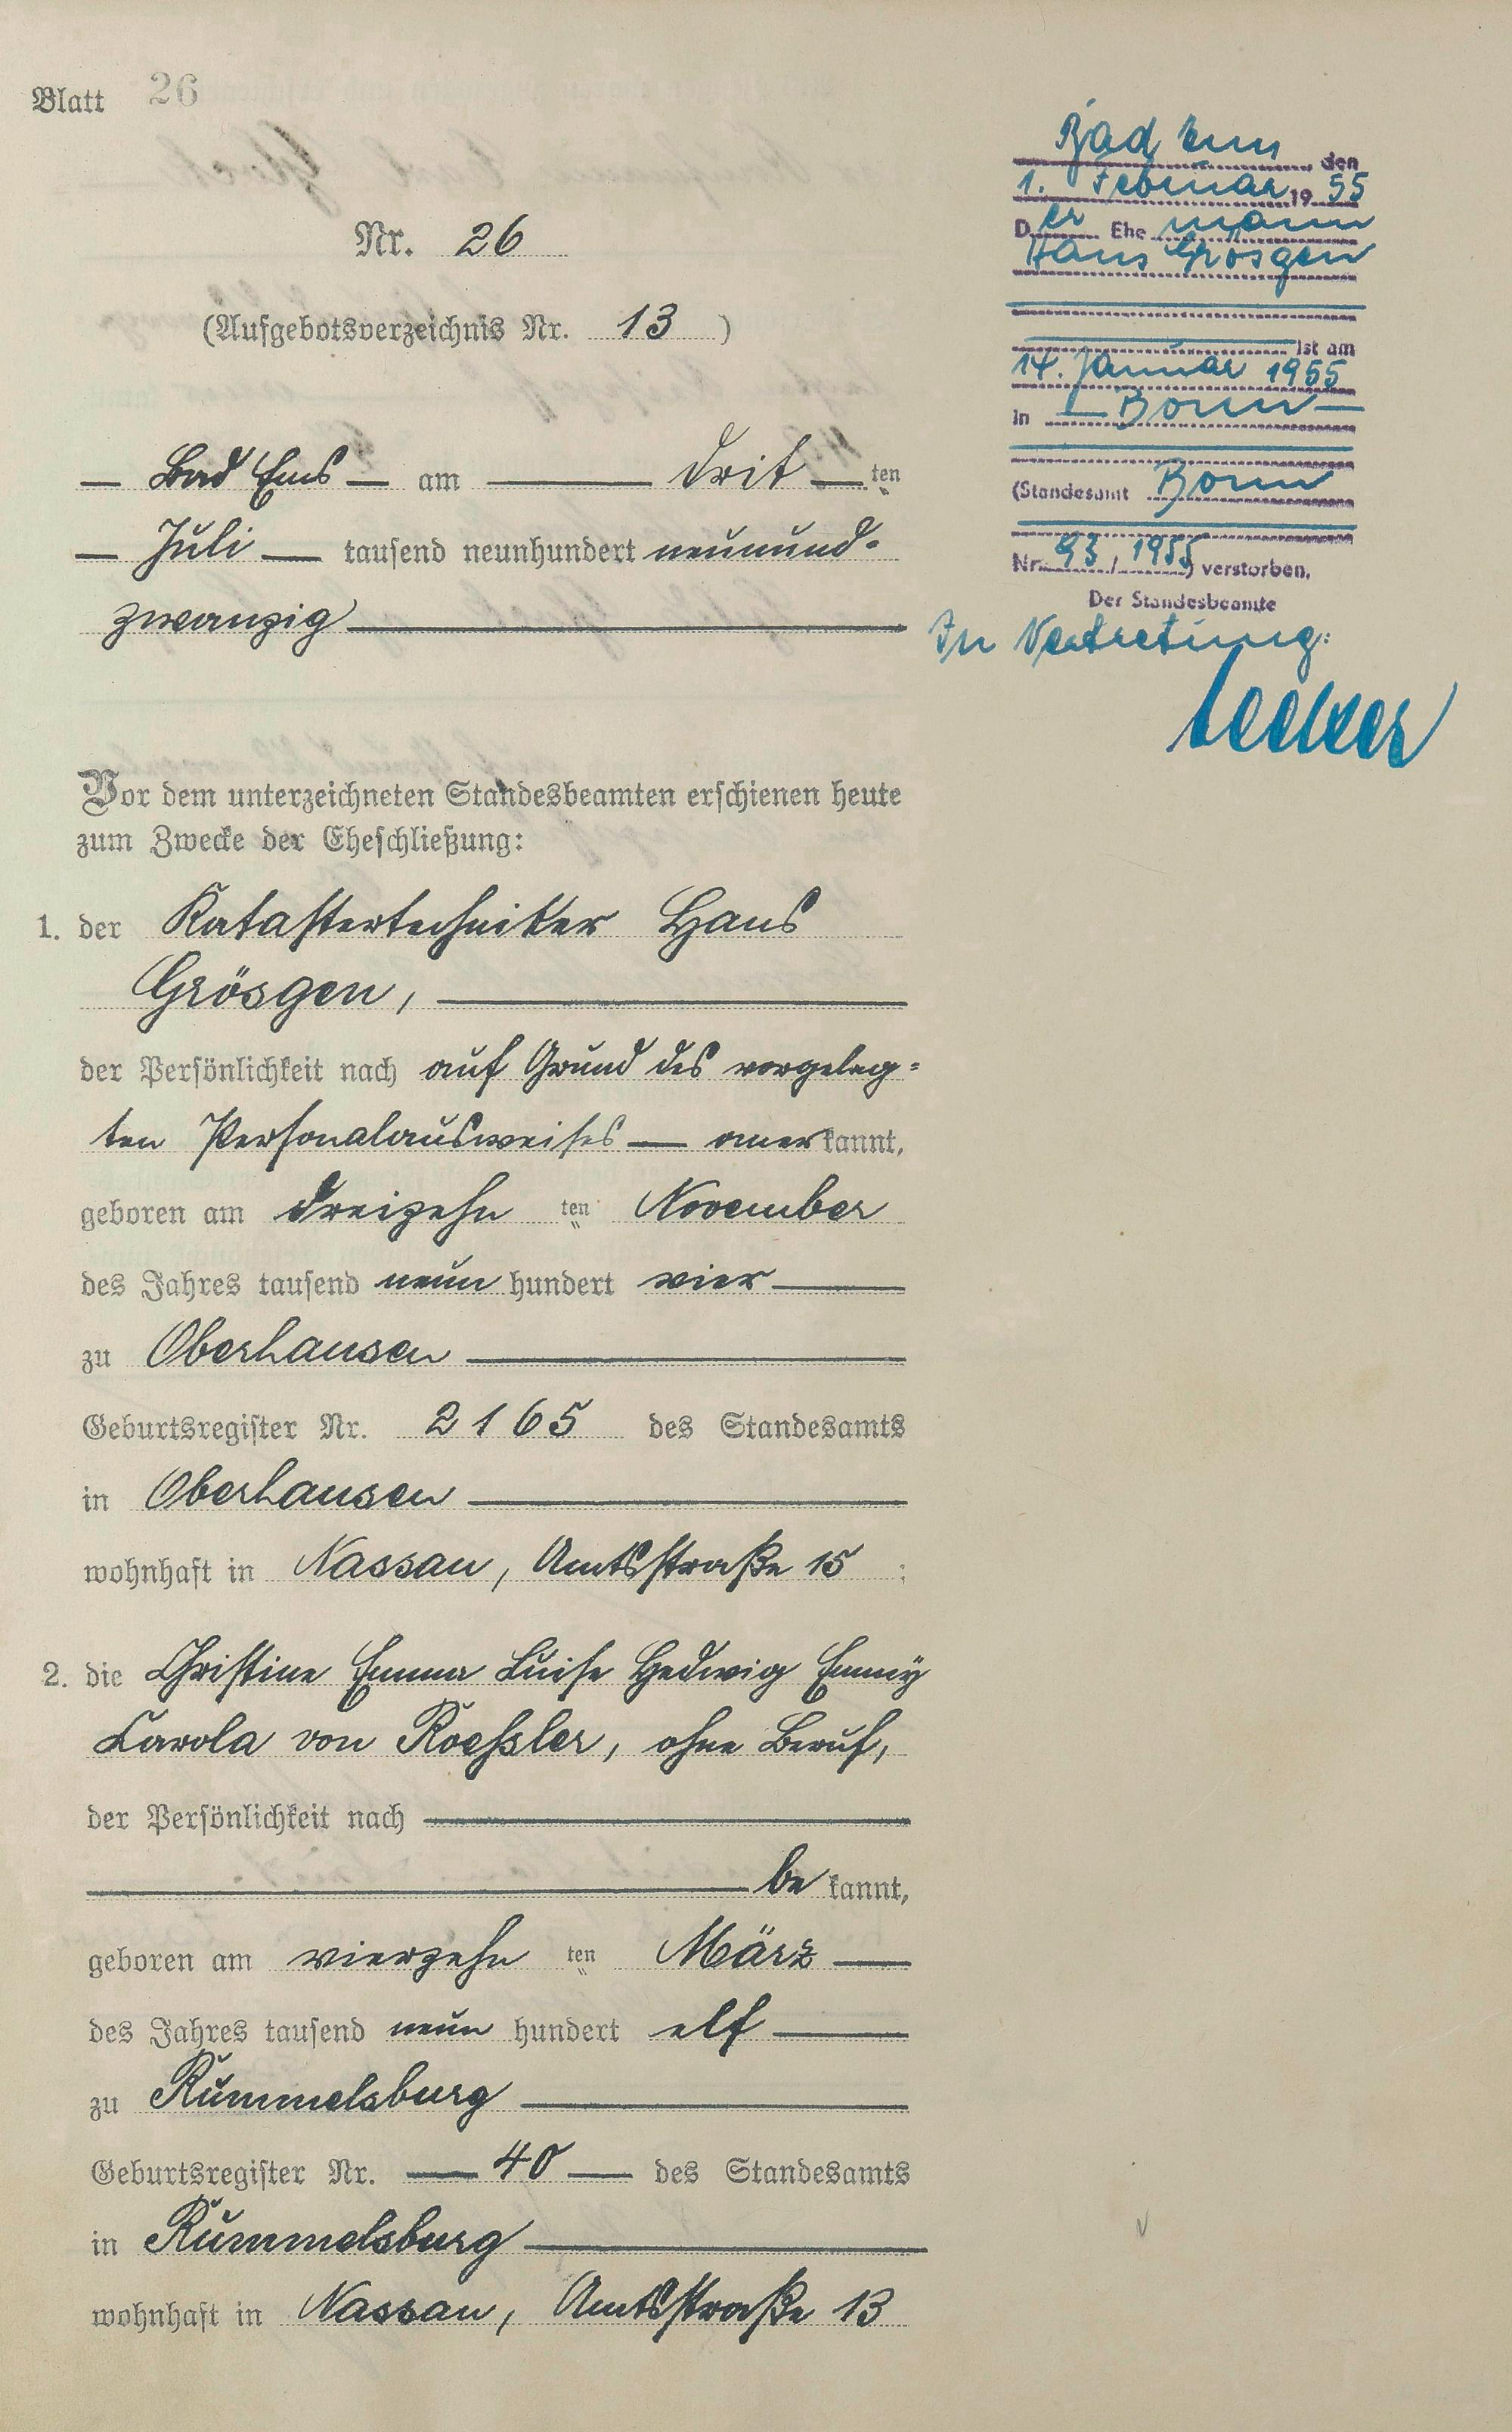 Blatt 26
Nr. 26
(Aufgebotsverzeichnis Nr. 13)
— Bad Ems — am — drit — ten
— Juli — tausend neunhundert neunund-
zwanzig —
Vor dem unterzeichneten Standesbeamten erschienen heute
zum Zwecke der Eheschließung:
1. der Katastertechniker Hans
Grösgen, —
der Persönlichkeit nach auf Grund des vorgeleg=
ten Personalausweises — anerkannt,
geboren am dreizehn ten November
des Jahres tausend neun hundert vier —
zu Oberhausen —
Geburtsregister Nr. 2165 des Standesamts
in Oberhausen —
wohnhaft in Nassau, Amtsstraße 15 ;
2. die Christine Emma Luise Hedwig Emmy
Carola von Roeßler, ohne Beruf,
der Persönlichkeit nach —
— be kannt,
geboren am vierzehn ten März —
des Jahres tausend neun hundert elf —
zu Rummelsburg —
Geburtsregister Nr. — 40 — des Standesamts
in Rummelsburg —
wohnhaft in Nassau, Amtsstraße 13
Bad Ems, den
1. Februar 1955
Der Ehemann
Hans Grösgen
ist am
14. Januar 1955
in — Bonn —
(Standesamt Bonn
Nr. 93/1955) verstorben.
Der Standesbeamte
In Vertretung: